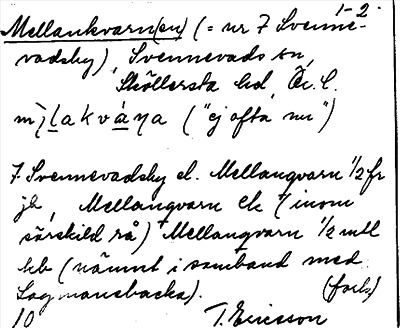 1-2.
Mellankvarn(en) (= nr 7 Svenne-
vadsby), Svennevads sn,
Sköllersta hd, Ör. l.
("ej ofta nu")
7 Svennevadsby el. Mellanqvarn 1/2 fr
jb, Mellanqvarn ek (inom
särskild rå) Mellanqvarn 1/2 mtl
hb (nämnt i samband med
Lagmansbacka). (forts)
10 T. Ericsson